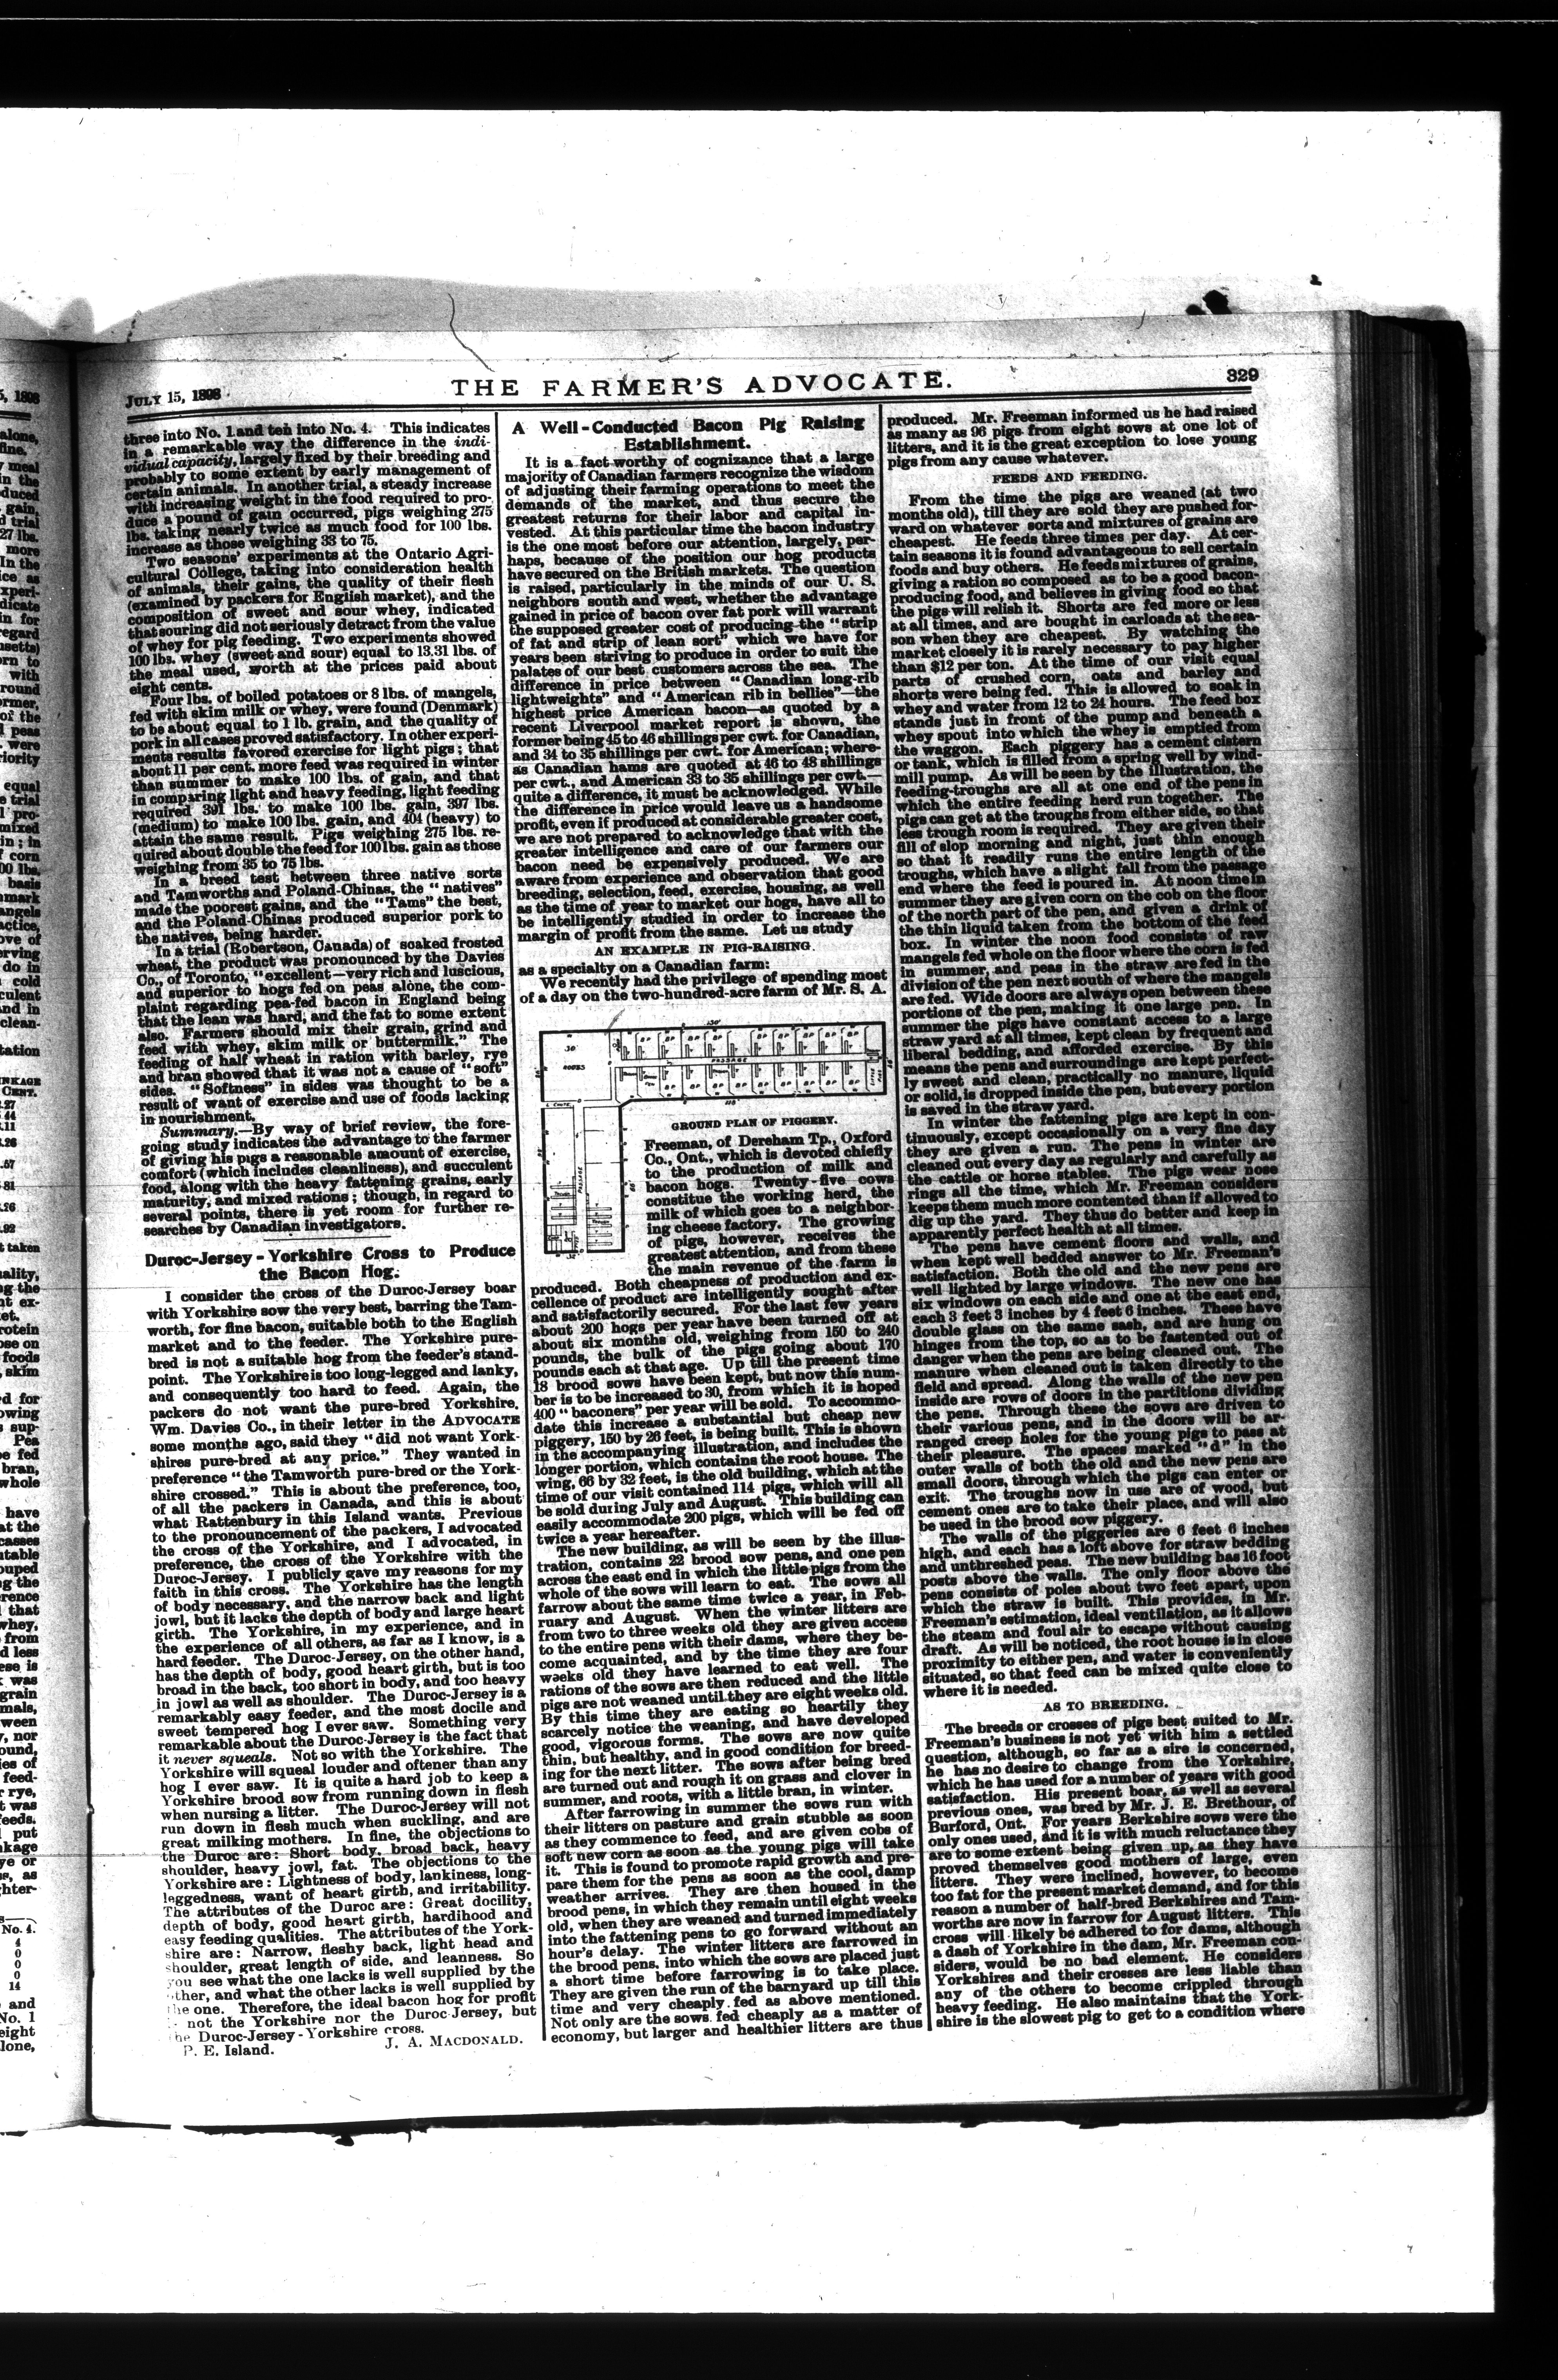 JULY 15, 1898
THE FARMER'S ADVOCATE.
329
three into No. 1 and ten into No. 4. This indicates
in a remarkable way the difference in the indi-
vidual capacity, largely fixed by their breeding and
probably to some extent by early management of
certain animals. In another trial, a steady increase
with increasing weight in the food required to pro-
duce a pound of gain occurred, pigs weighing 275
lbs. taking nearly twice as much food for 100 lbs.
increase as those weighing 33 to 75.
Two seasons' experiments at the Ontario Agri-
cultural College, taking into consideration health
of animals, their gains, the quality of their flesh
(examined by packers for English market), and the
composition of sweet and sour whey, indicated
that souring did not seriously detract from the value
of whey for pig feeding. Two experiments showed
100 lbs. whey (sweet and sour) equal to 13.31 lbs. of
the meal used, worth at the prices paid about
eight cents.
Four lbs. of boiled potatoes or 8 lbs. of mangels,
fed with skim milk or whey, were found (Denmark)
to be about equal to 1 lb. grain, and the quality of
pork in all cases proved satisfactory. In other experi-
ments results favored exercise for light pigs; that
about 11 per cent. more feed was required in winter
than summer to make 100 lbs. of gain, and that
in comparing light and heavy feeding, light feeding
required 391 lbs. to make 100 lbs. gain, 397 lbs.
(medium) to make 100 lbs. gain, and 404 (heavy) to
attain the same result. Pigs weighing 275 lbs. re-
quired about double the feed for 100 lbs. gain as those
weighing from 35 to 75 lbs.
In a breed test between three native sorts
and Tamworths and Poland-Chinas, the "natives"
made the poorest gains, and the "Tams" the best,
and the Poland-Chinas produced superior pork to
the natives, being harder.
In a trial (Robertson, Canada) of soaked frosted
wheat, the product was pronounced by the Davies
Co., of Toronto, "excellent—very rich and luscious,
and superior to hogs fed on peas alone, the com-
plaint regarding pea-fed bacon in England being
that the lean was hard, and the fat to some extent
also. Farmers should mix their grain, grind and
feed with whey, skim milk or buttermilk." The
feeding of half wheat in ration with barley, rye
and bran showed that it was not a cause of "soft"
sides. "Softness" in sides was thought to be a
result of want of exercise and use of foods lacking
in nourishment.
Summary.—By way of brief review, the fore-
going study indicates the advantage to the farmer
of giving his pigs a reasonable amount of exercise,
comfort (which includes cleanliness), and succulent
food, along with the heavy fattening grains, early
maturity, and mixed rations; though, in regard to
several points, there is yet room for further re-
searches by Canadian investigators.
Duroc-Jersey - Yorkshire Cross to Produce
the Bacon Hog.
I consider the cross of the Duroc-Jersey boar
with Yorkshire sow the very best, barring the Tam-
worth, for fine bacon, suitable both to the English
market and to the feeder. The Yorkshire pure-
bred is not a suitable hog from the feeder's stand-
point. The Yorkshire is too long-legged and lanky,
and consequently too hard to feed. Again, the
packers do not want the pure-bred Yorkshire.
Wm. Davies Co., in their letter in the ADVOCATE
some months ago, said they "did not want York-
shires pure-bred at any price." They wanted in
preference "the Tamworth pure-bred or the York-
shire crossed." This is about the preference, too,
of all the packers in Canada, and this is about
what Rattenbury in this Island wants. Previous
to the pronouncement of the packers, I advocated
the cross of the Yorkshire, and I advocated, in
preference, the cross of the Yorkshire with the
Duroc-Jersey. I publicly gave my reasons for my
faith in this cross. The Yorkshire has the length
of body necessary, and the narrow back and light
jowl, but it lacks the depth of body and large heart
girth. The Yorkshire, in my experience, and in
the experience of all others, as far as I know, is a
hard feeder. The Duroc-Jersey, on the other hand,
has the depth of body, good heart girth, but is too
broad in the back, too short in body, and too heavy
in jowl as well as shoulder. The Duroc-Jersey is a
remarkably easy feeder, and the most docile and
sweet tempered hog I ever saw. Something very
remarkable about the Duroc-Jersey is the fact that
it never squeals. Not so with the Yorkshire. The
Yorkshire will squeal louder and oftener than any
hog I ever saw. It is quite a hard job to keep a
Yorkshire brood sow from running down in flesh
when nursing a litter. The Duroc-Jersey will not
run down in flesh much when suckling, and are
great milking mothers. In fine, the objections to
the Duroc are: Short body, broad back, heavy
shoulder, heavy jowl, fat. The objections to the
Yorkshire are: Lightness of body, lankiness, long-
leggedness, want of heart girth, and irritability.
The attributes of the Duroc are: Great docility,
depth of body, good heart girth, hardihood and
easy feeding qualities. The attributes of the York-
shire are: Narrow, fleshy back, light head and
shoulder, great length of side, and leanness. So
you see what the one lacks is well supplied by the
other, and what the other lacks is well supplied by
the one. Therefore, the ideal bacon hog for profit
not the Yorkshire nor the Duroc Jersey, but
the Duroc-Jersey - Yorkshire cross.
P. E. Island. J. A. MACDONALD.
A Well-Conducted Bacon Pig Raising
Establishment.
It is a fact worthy of cognizance that a large
majority of Canadian farmers recognize the wisdom
of adjusting their farming operations to meet the
demands of the market, and thus secure the
greatest returns for their labor and capital in-
vested. At this particular time the bacon industry
is the one most before our attention, largely, per-
haps, because of the position our hog products
have secured on the British markets. The question
is raised, particularly in the minds of our U. S.
neighbors south and west, whether the advantage
gained in price of bacon over fat pork will warrant
the supposed greater cost of producing the "strip
of fat and strip of lean sort" which we have for
years been striving to produce in order to suit the
palates of our best customers across the sea. The
difference in price between "Canadian long-rib
lightweights" and "American rib in bellies"—the
highest price American bacon—as quoted by a
recent Liverpool market report is shown, the
former being 45 to 46 shillings per cwt. for Canadian,
and 34 to 35 shillings per cwt. for American; where-
as Canadian hams are quoted at 46 to 48 shillings
per cwt., and American 33 to 35 shillings per cwt.—
quite a difference, it must be acknowledged. While
the difference in price would leave us a handsome
profit, even if produced at considerable greater cost,
we are not prepared to acknowledge that with the
greater intelligence and care of our farmers our
bacon need be expensively produced. We are
aware from experience and observation that good
breeding, selection, feed, exercise, housing, as well
as the time of year to market our hogs, have all to
be intelligently studied in order to increase the
margin of profit from the same. Let us study
AN EXAMPLE IN PIG-RAISING
as a specialty on a Canadian farm:
We recently had the privilege of spending most
of a day on the two-hundred-acre farm of Mr. S. A.
150'
30'
ROOTS
PASSAGE
PASSAGE
GROUND PLAN OF PIGGERY.
Freeman, of Dereham Tp., Oxford
Co., Ont., which is devoted chiefly
to the production of milk and
bacon hogs. Twenty-five cows
constitue the working herd, the
milk of which goes to a neighbor-
ing cheese factory. The growing
of pigs, however, receives the
greatest attention, and from these
the main revenue of the farm is
produced. Both cheapness of production and ex-
cellence of product are intelligently sought after
and satisfactorily secured. For the last few years
about 200 hogs per year have been turned off at
about six months old, weighing from 150 to 240
pounds, the bulk of the pigs going about 170
pounds each at that age. Up till the present time
18 brood sows have been kept, but now this num-
ber is to be increased to 30, from which it is hoped
400 "baconers" per year will be sold. To accommo-
date this increase a substantial but cheap new
piggery, 150 by 26 feet, is being built. This is shown
in the accompanying illustration, and includes the
longer portion, which contains the root house. The
wing, 66 by 32 feet, is the old building, which at the
time of our visit contained 114 pigs, which will all
be sold during July and August. This building can
easily accommodate 200 pigs, which will be fed off
twice a year hereafter.
The new building, as will be seen by the illus-
tration, contains 22 brood sow pens, and one pen
across the east end in which the little pigs from the
whole of the sows will learn to eat. The sows all
farrow about the same time twice a year, in Feb-
ruary and August. When the winter litters are
from two to three weeks old they are given access
to the entire pens with their dams, where they be-
come acquainted, and by the time they are four
weeks old they have learned to eat well. The
rations of the sows are then reduced and the little
pigs are not weaned until they are eight weeks old.
By this time they are eating so heartily they
scarcely notice the weaning, and have developed
good, vigorous forms. The sows are now quite
thin, but healthy, and in good condition for breed-
ing for the next litter. The sows after being bred
are turned out and rough it on grass and clover in
summer, and roots, with a little bran, in winter.
After farrowing in summer the sows run with
their litters on pasture and grain stubble as soon
as they commence to feed, and are given cobs of
soft new corn as soon as the young pigs will take
it. This is found to promote rapid growth and pre-
pare them for the pens as soon as the cool, damp
weather arrives. They are then housed in the
brood pens, in which they remain until eight weeks
old, when they are weaned and turned immediately
into the fattening pens to go forward without an
hour's delay. The winter litters are farrowed in
the brood pens, into which the sows are placed just
a short time before farrowing is to take place.
They are given the run of the barnyard up till this
time and very cheaply fed as above mentioned.
Not only are the sows fed cheaply as a matter of
economy, but larger and healthier litters are thus
produced. Mr. Freeman informed us he had raised
as many as 96 pigs from eight sows at one lot of
litters, and it is the great exception to lose young
pigs from any cause whatever.
FEEDS AND FEEDING.
From the time the pigs are weaned (at two
months old), till they are sold they are pushed for-
ward on whatever sorts and mixtures of grains are
cheapest. He feeds three times per day. At cer-
tain seasons it is found advantageous to sell certain
foods and buy others. He feeds mixtures of grains,
giving a ration so composed as to be a good bacon-
producing food, and believes in giving food so that
the pigs will relish it. Shorts are fed more or less
at all times, and are bought in carloads at the sea-
son when they are cheapest. By watching the
market closely it is rarely necessary to pay higher
than $12 per ton. At the time of our visit equal
parts of crushed corn, oats and barley and
shorts were being fed. This is allowed to soak in
whey and water from 12 to 24 hours. The feed box
stands just in front of the pump and beneath a
whey spout into which the whey is emptied from
the waggon. Each piggery has a cement cistern
or tank, which is filled from a spring well by wind-
mill pump. As will be seen by the illustration, the
feeding-troughs are all at one end of the pens in
which the entire feeding herd run together. The
pigs can get at the troughs from either side, so that
less trough room is required. They are given their
fill of slop morning and night, just thin enough
so that it readily runs the entire length of the
troughs, which have a slight fall from the passage
end where the feed is poured in. At noon time in
summer they are given corn on the cob on the floor
of the north part of the pen, and given a drink of
the thin liquid taken from the bottom of the feed
box. In winter the noon food consists of raw
mangels fed whole on the floor where the corn is fed
in summer, and peas in the straw are fed in the
division of the pen next south of where the mangels
are fed. Wide doors are always open between these
portions of the pen, making it one large pen. In
summer the pigs have constant access to a large
straw yard at all times, kept clean by frequent and
liberal bedding, and afforded exercise. By this
means the pens and surroundings are kept perfect-
ly sweet and clean, practically no manure, liquid
or solid, is dropped inside the pen, but every portion
is saved in the straw yard.
In winter the fattening pigs are kept in con-
tinuously, except occasionally on a very fine day
they are given a run. The pens in winter are
cleaned out every day as regularly and carefully as
the cattle or horse stables. The pigs wear nose
rings all the time, which Mr. Freeman considers
keeps them much more contented than if allowed to
dig up the yard. They thus do better and keep in
apparently perfect health at all times.
The pens have cement floors and walls, and
when kept well bedded answer to Mr. Freeman's
satisfaction. Both the old and the new pens are
well lighted by large windows. The new one has
six windows on each side and one at the east end,
each 3 feet 3 inches by 4 feet 6 inches. These have
double glass on the same sash, and are hung on
hinges from the top, so as to be fastented out of
danger when the pens are being cleaned out. The
manure when cleaned out is taken directly to the
field and spread. Along the walls of the new pen
inside are rows of doors in the partitions dividing
the pens. Through these the sows are driven to
their various pens, and in the doors will be ar-
ranged creep holes for the young pigs to pass at
their pleasure. The spaces marked "d" in the
outer walls of both the old and the new pens are
small doors, through which the pigs can enter or
exit. The troughs now in use are of wood, but
cement ones are to take their place, and will also
be used in the brood sow piggery.
The walls of the piggeries are 6 feet 6 inches
high, and each has a loft above for straw bedding
and unthreshed peas. The new building has 16 foot
posts above the walls. The only floor above the
pens consists of poles about two feet apart, upon
which the straw is built. This provides, in Mr.
Freeman's estimation, ideal ventilation, as it allows
the steam and foul air to escape without causing
draft. As will be noticed, the root house is in close
proximity to either pen, and water is conveniently
situated, so that feed can be mixed quite close to
where it is needed.
AS TO BREEDING.
The breeds or crosses of pigs best suited to Mr.
Freeman's business is not yet with him a settled
question, although, so far as a sire is concerned,
he has no desire to change from the Yorkshire,
which he has used for a number of years with good
satisfaction. His present boar, as well as several
previous ones, was bred by Mr. J. E. Brethour, of
Burford, Ont. For years Berkshire sows were the
only ones used, and it is with much reluctance they
are to some extent being given up, as they have
proved themselves good mothers of large, even
litters. They were inclined, however, to become
too fat for the present market demand, and for this
reason a number of half-bred Berkshires and Tam-
worths are now in farrow for August litters. This
cross will likely be adhered to for dams, although
a dash of Yorkshire in the dam, Mr. Freeman con-
siders, would be no bad element. He considers
Yorkshires and their crosses are less liable than
any of the others to become crippled through
heavy feeding. He also maintains that the York-
shire is the slowest pig to get to a condition where